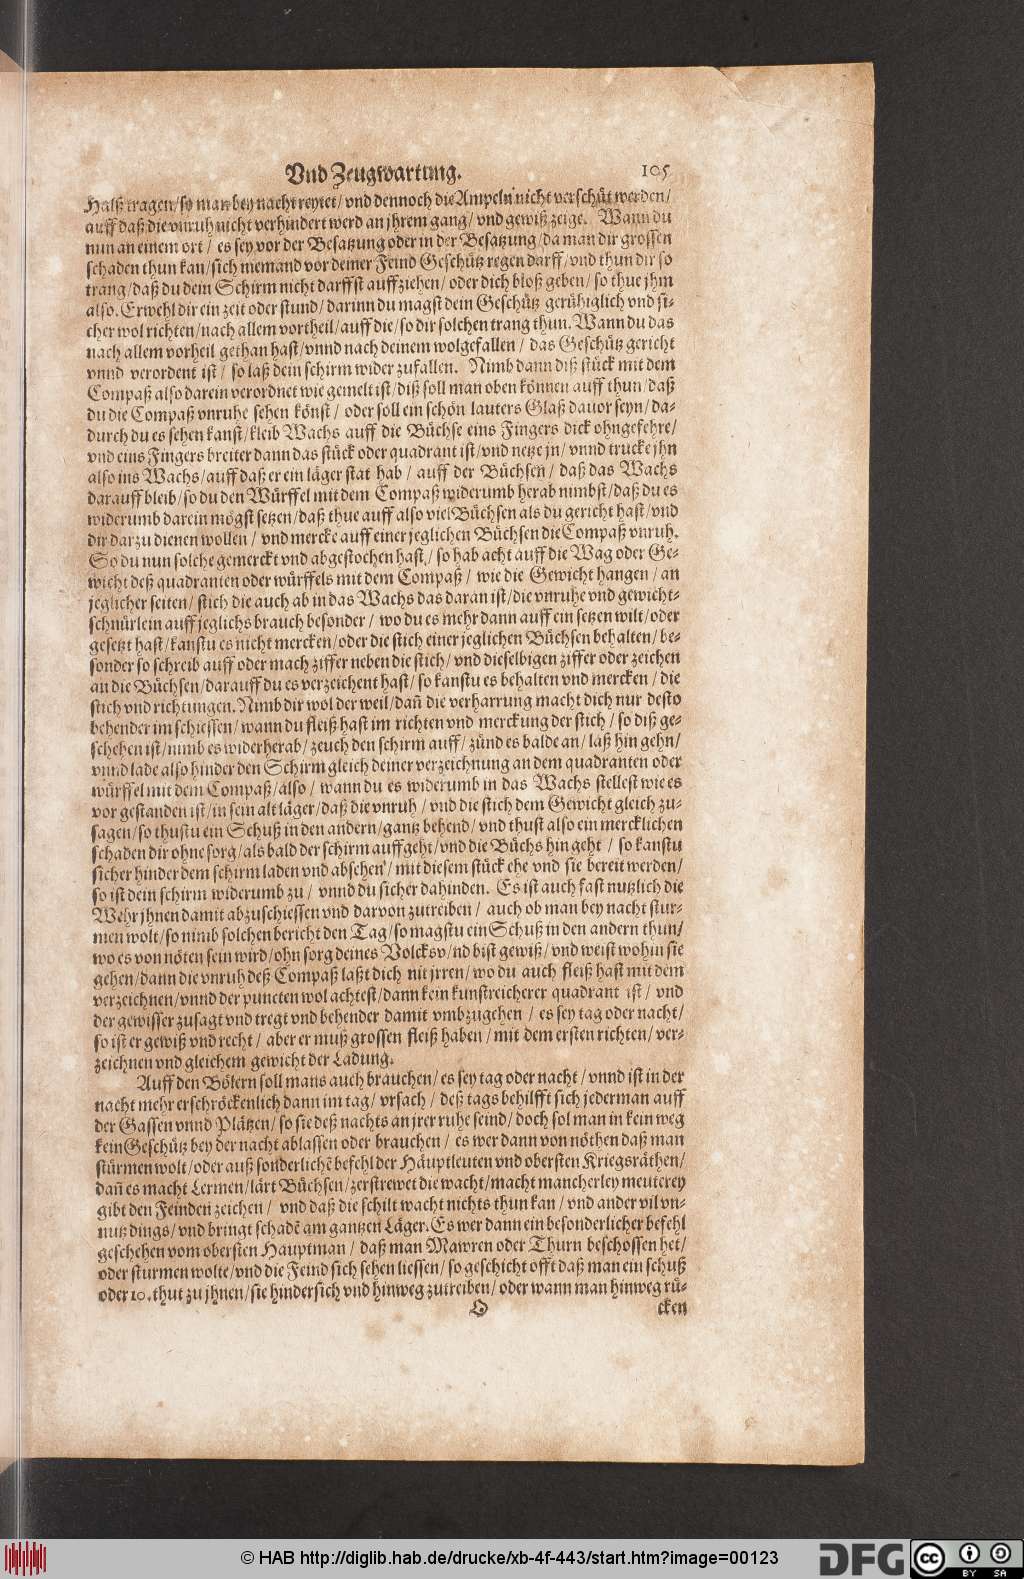 Vnd Zeugwartung. 105
Halß tragen/so man bey nacht reytet/vnd dennoch die Ampeln nicht verschüt werden/
auff daß die vnruh nicht verhindert werd an jhrem gang/vnd gewiß zeige. Wann du
nun an einem ort/es sey vor der Besatzung oder in der Besatzung/da man dir grossen
schaden thun kan/sich niemand vor deiner Feind Geschütz regen darff/vnd thun dir so
trang/daß du dem Schirm nicht darffst auffziehen/oder dich bloß geben/so thue jhm
also. Erwehl dir ein zeit oder stund/darinn du magst dein Geschütz gerühiglich vnd si-
cher wol richten/nach allem vortheil/auff die/so dir solchen trang thun. Wann du das
nach allem vorheil gethan hast/vnnd nach deinem wolgefallen/das Geschütz gericht
vnnd verordent ist/so laß dein schirm wider zufallen. Nimb dann diß stück mit dem
Compaß also darein verordnet wie gemelt ist/diß soll man oben können auff thun/daß
du die Compaß vnruhe sehen könst/oder soll ein schön lauters Glaß dauor seyn/da-
durch du es sehen kanst/kleib Wachs auff die Büchse eins Fingers dick ohngefehre/
vnd eins Fingers breiter dann das stück oder quadrant ist/vnd netze jn/vnnd trucke jhn
also ins Wachs/auff daß er ein läger stat hab/auff der Büchsen/daß das Wachs
darauff bleib/so du den Würffel mit dem Compaß widerumb herab nimbst/daß du es
widerumb darein mögst setzen/daß thue auff also viel Büchsen als du gericht hast/vnd
dir darzu dienen wollen/vnd mercke auff einer jeglichen Büchsen die Compaß vnruh.
So du nun solche gemerckt vnd abgestochen hast/so hab acht auff die Wag oder Ge-
wicht deß quadranten oder würffels mit dem Compaß/wie die Gewicht hangen/an
jeglicher seiten/stich die auch ab in das Wachs das daran ist/die vnruhe vnd gewicht-
schnürlein auff jeglichs brauch besonder/wo du es mehr dann auff ein setzen wilt/oder
gesetzt hast/kanstu es nicht mercken/oder die stich einer jeglichen Büchsen behalten/be-
sonder so schreib auff oder mach ziffer neben die stich/vnd dieselbigen ziffer oder zeichen
an die Büchsen/darauff du es verzeichent hast/so kanstu es behalten vnd mercken/die
stich vnd richtungen. Nimb dir wol der weil/dañ die verharrung macht dich nur desto
behender im schiessen/wann du fleiß hast im richten vnd merckung der stich/so diß ge-
schehen ist/nimb es wider herab/zeuch den schirm auff/zünd es balde an/laß hin gehn/
vnnd lade also hinder den Schirm gleich deiner verzeichnung an dem quadranten oder
würffel mit dem Compaß/also/wann du es widerumb in das Wachs stellest wie es
vor gestanden ist/in sein alt läger/daß die vnruh/vnd die stich dem Gewicht gleich zu-
sagen/so thustu ein Schuß in den andern/gantz behend/vnd thust also ein mercklichen
schaden dir ohne sorg/als bald der schirm auffgeht/vnd die Büchs hin geht/so kanstu
sicher hinder dem schirm laden vnd absehen/mit diesem stück ehe vnd sie bereit werden/
so ist dein schirm widerumb zu/vnnd du sicher dahinden. Es ist auch fast nutzlich die
Wehr jhnen damit abzuschiessen vnd darvon zutreiben/auch ob man bey nacht stur-
men wolt/so nimb solchen bericht den Tag/so magstu ein Schuß in den andern thun/
wo es von nöten sein wird/ohn sorg deines Volcksv/nd bist gewiß/vnd weist wohin sie
gehen/dann die vnruh deß Compaß laßt dich nit jrren/wo du auch fleiß hast mit dem
verzeichnen/vnnd der puncten wol achtest/dann kein kunstreicherer quadrant ist/vnd
der gewisser zusagt vnd tregt vnd behender damit vmbzugehen/es sey tag oder nacht/
so ist er gewiß vnd recht/aber er muß grossen fleiß haben/mit dem ersten richten/ver-
zeichnen vnd gleichem gewicht der Ladung.
Auff den Bölern soll mans auch brauchen/es sey tag oder nacht/vnnd ist in der
nacht mehr erschröckenlich dann im tag/vrsach/deß tags behilfft sich jederman auff
der Gassen vnnd Plätzen/so sie deß nachts an jrer ruhe seind/doch sol man in kein weg
kein Geschütz bey der nacht ablassen oder brauchen/es wer dann von nöthen daß man
stürmen wolt/oder auß sonderlichē befehl der Häuptleuten vnd obersten Kriegsräthen/
dañ es macht Lermen/lärt Büchsen/zerstrewet die wacht/macht mancherley meuterey
gibt den Feinden zeichen/vnd daß die schilt wacht nichts thun kan/vnd ander vil vn-
nutz dings/vnd bringt schadē am gantzen Läger. Es wer dann ein besonderlicher befehl
geschehen vom obersten Hauptman/daß man Mawren oder Thurn beschossen het/
oder sturmen wolte/vnd die Feind sich sehen liessen/so geschicht offt daß man ein schuß
oder 10. thut zu jhnen/sie hindersich vnd hinweg zutreiben/oder wann man hinweg rü-
O cken
© HAB http://diglib.hab.de/drucke/xb-4f-443/start.htm?image=00123
DFG cc BY SA